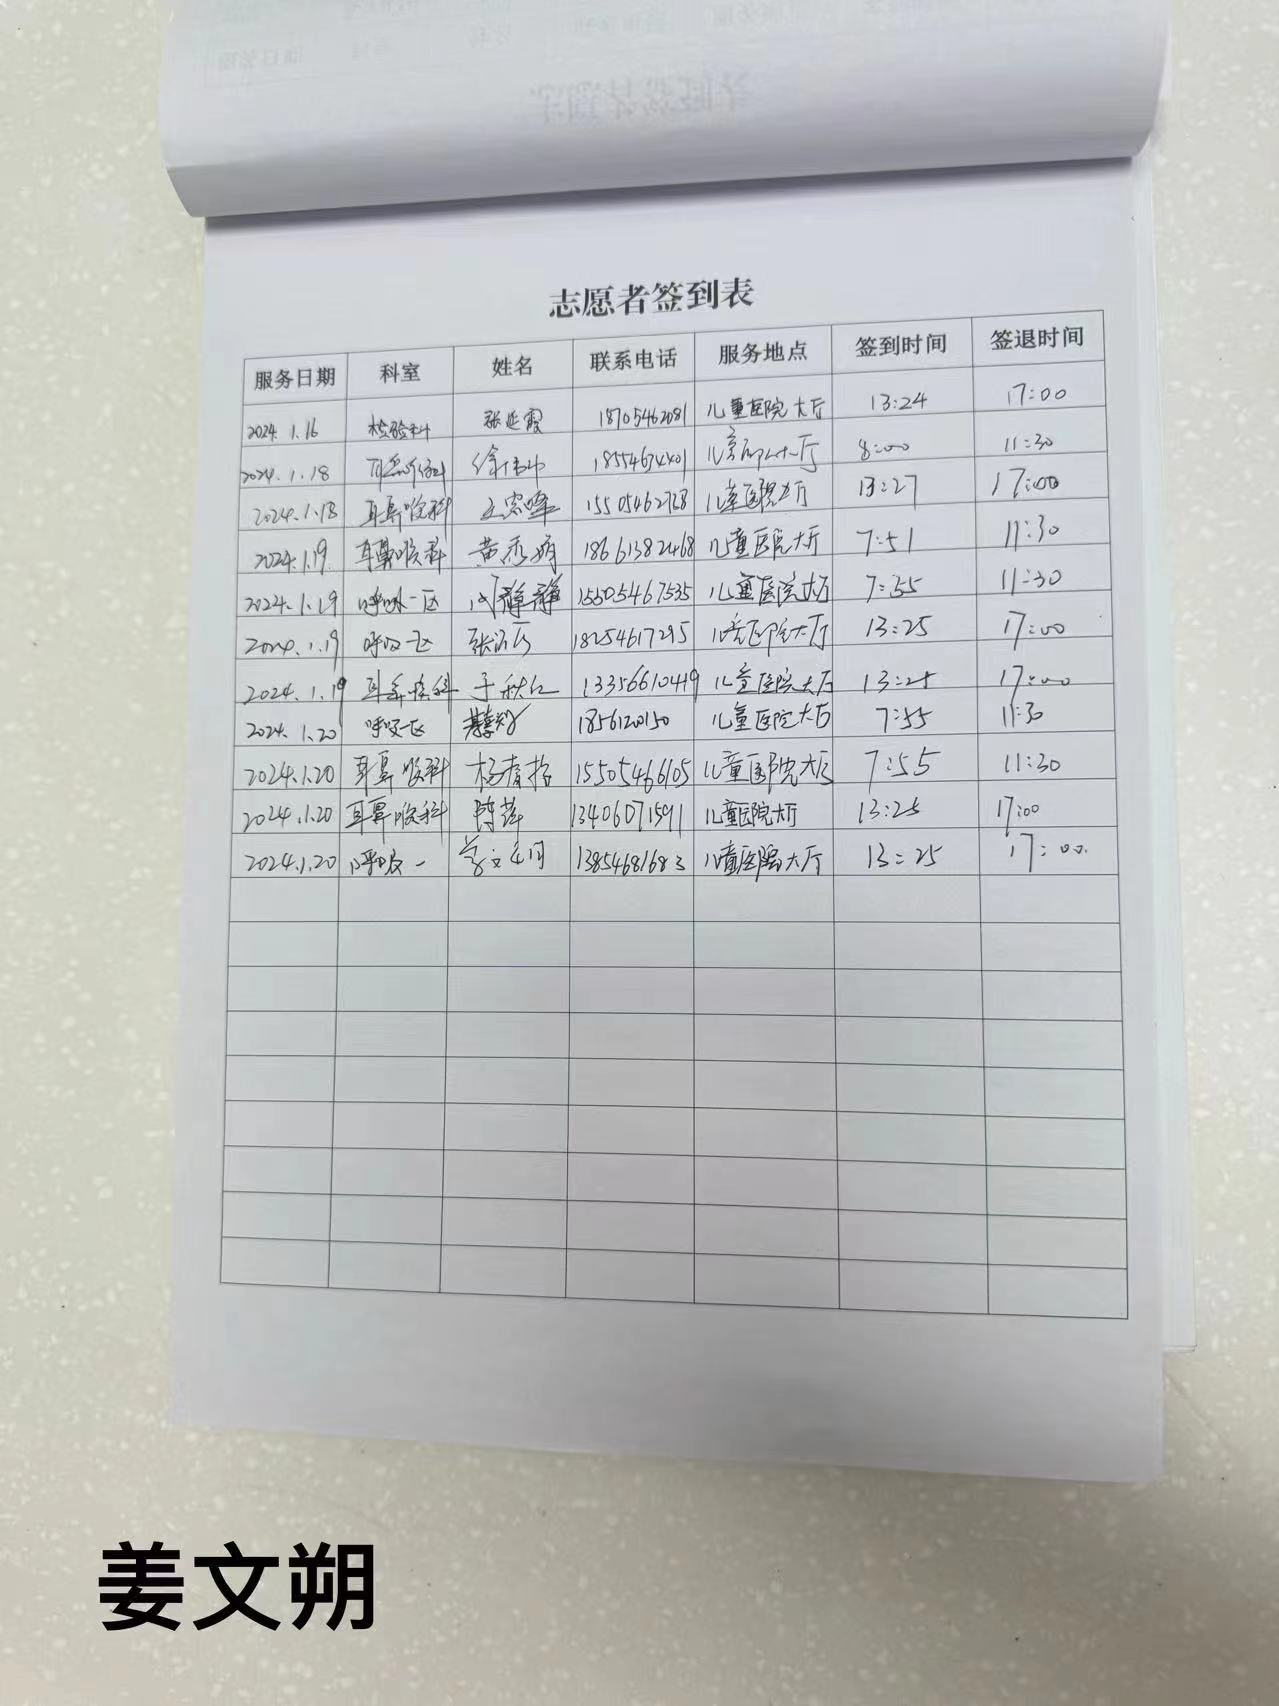 志愿者签到表
服务日期 科室 姓名 联系电话 服务地点 签到时间 签退时间
2024.1.16 检验科 张延霞 18705462081 儿童医院大厅 13:24 17:00
2024.1.18 18554674401 8:00 11:30
2024.1.18 耳鼻喉科 15505462768 儿童医院大厅 13:27 17:00
2024.1.19. 耳鼻喉科 黄秀娟 18661382468 儿童医院大厅 7:51 11:30
2024.1.19 呼吸一区 静静 15505467535 儿童医院大厅 7:55 11:30
2024.1.19 呼吸一区 18254617295 大厅 13:25 17:00
2024.1.19 耳鼻喉科 于秋红 13356610419 儿童医院大厅 13:25 17:00
2024.1.20 呼吸一区 1856120150 儿童医院大厅 7:55 11:30
2024.1.20 耳鼻喉科 杨 15505466105 儿童医院大厅 7:55 11:30
2024.1.20 耳鼻喉科 陈萍 13406071591 儿童医院大厅 13:25 17:00
2024.1.20 呼吸一 13854681683 儿童医院大厅 13:25 17:00.
姜文朔